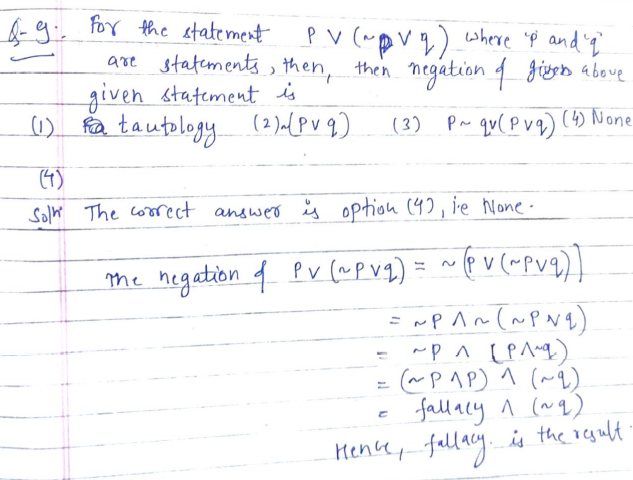 Q-9:. For the statement P ∨ (~p ∨ q) where 'p' and 'q'
are statements, then, then negation of given above
given statement is
(1) tautology (2) ~(P∨q) (3) P~ q∨(P∨q) (4) None
(4)
Solⁿ The correct answer is option (4), i.e None.
The negation of P∨(~P∨q) = ~[P∨(~P∨q)]
= ~P ∧ ~(~P∨q)
= ~P ∧ (P∧~q)
= (~P∧P) ∧ (~q)
= fallacy ∧ (~q)
Hence, fallacy. is the result.